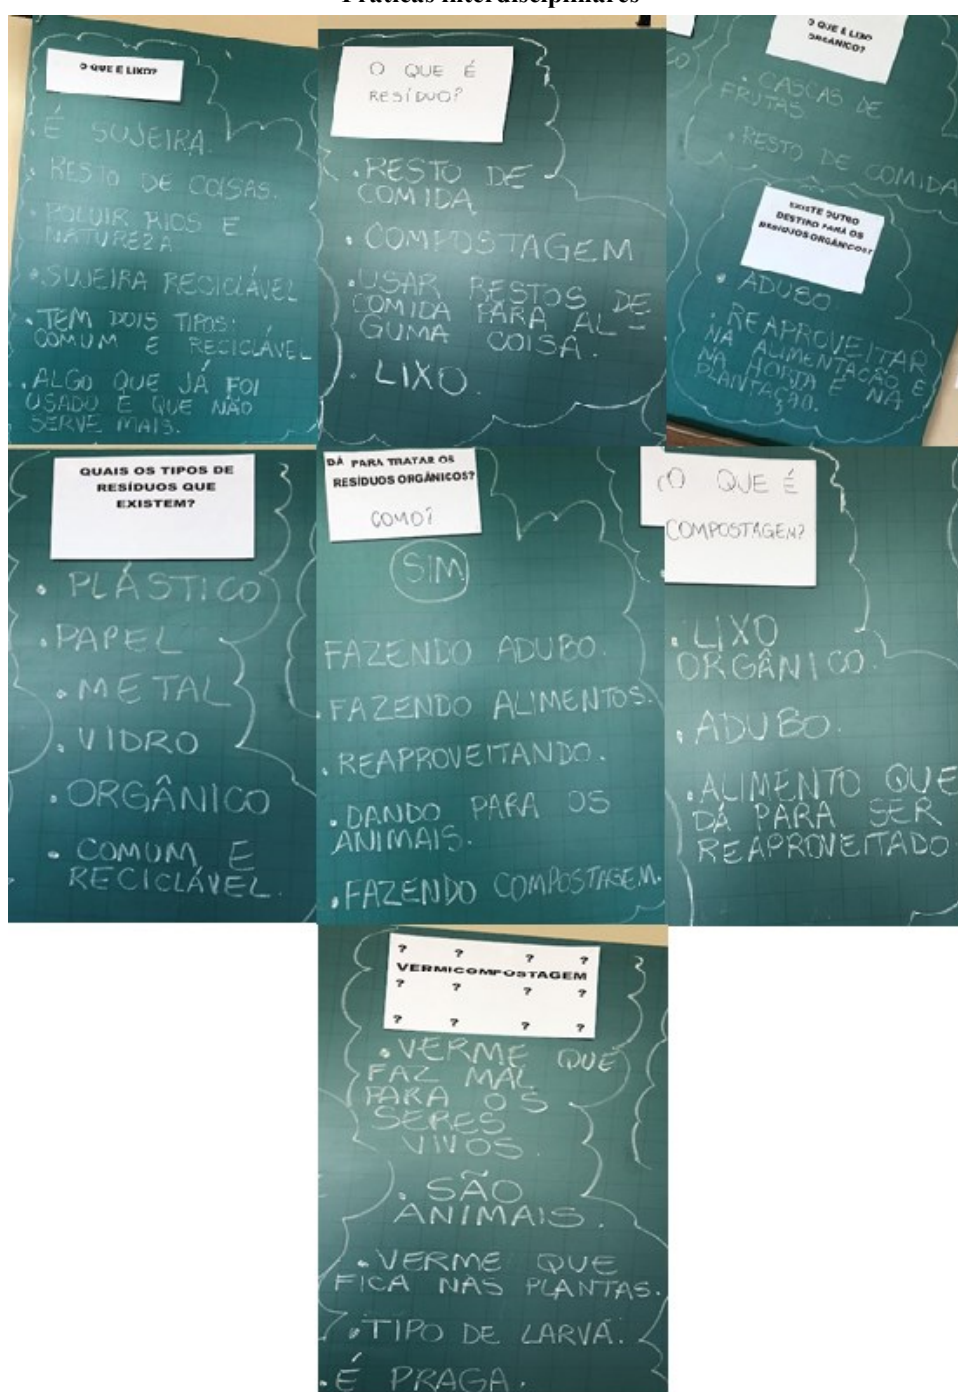 Práticas interdisciplinares
O QUE É LIXO?
. É SUJEIRA.
. RESTO DE COISAS.
. POLUIR RIOS E
NATUREZA
. SUJEIRA RECICLÁVEL
. TEM DOIS TIPOS:
COMUM E RECICLÁVEL
. ALGO QUE JÁ FOI
USADO E QUE NÃO
SERVE MAIS.
O QUE É
RESÍDUO?
. RESTO DE
COMIDA
. COMPOSTAGEM
. USAR RESTOS DE
COMIDA PARA AL-
GUMA COISA.
. LIXO.
O QUE É LIXO
ORGÂNICO?
. CASCAS DE
FRUTAS
. RESTO DE COMIDA
EXISTE OUTRO
DESTINO PARA OS
RESÍDUOS ORGÂNICOS?
. ADUBO.
. REAPROVEITAR
NA ALIMENTAÇÃO E
NA HORTA E NA
PLANTAÇÃO.
QUAIS OS TIPOS DE
RESÍDUOS QUE
EXISTEM?
. PLÁSTICO
. PAPEL
. METAL
. VIDRO
. ORGÂNICO
. COMUM E
RECICLÁVEL.
DÁ PARA TRATAR OS
RESÍDUOS ORGÂNICOS?
COMO?
SIM
FAZENDO ADUBO.
. FAZENDO ALIMENTOS.
. REAPROVEITANDO.
. DANDO PARA OS
ANIMAIS.
. FAZENDO COMPOSTAGEM.
O QUE É
COMPOSTAGEM?
. LIXO
ORGÂNICO.
. ADUBO.
. ALIMENTO QUE
DÁ PARA SER
REAPROVEITADO
? ? ? ?
VERMICOMPOSTAGEM
? ? ? ?
? ? ? ?
. VERME QUE
FAZ MAL
PARA OS
SERES
VIVOS.
. SÃO
ANIMAIS.
. VERME QUE
FICA NAS PLANTAS.
. TIPO DE LARVA.
. É PRAGA.